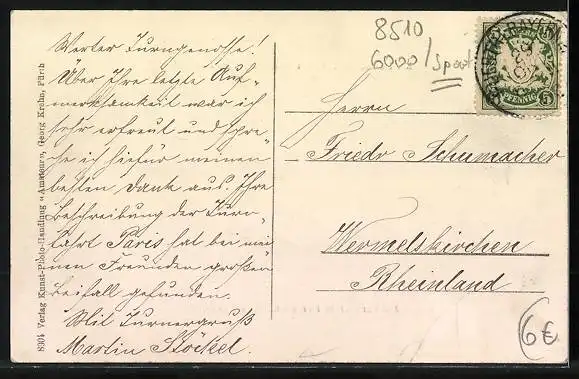 8510
6000 / Sport
BAYERN
PFENNIG
5
Werter Turngenosse!
Über Ihre letzte Auf-
merksamkeit war ich
sehr erfreut und spre-
che ich hiefür meinen
besten Dank aus. Ihre
Beschreibung der Turn-
fahrt Paris hat bei mei-
nen Freunden großen
Beifall gefunden.
Mit Turnergruß
Martin Stöckel.
Herrn
Friedr Schumacher
Wermelskirchen
Rheinland
6€
8304 Verlag Kunst-Photo-Handlung «Amateur», Georg Krehn, Fürth